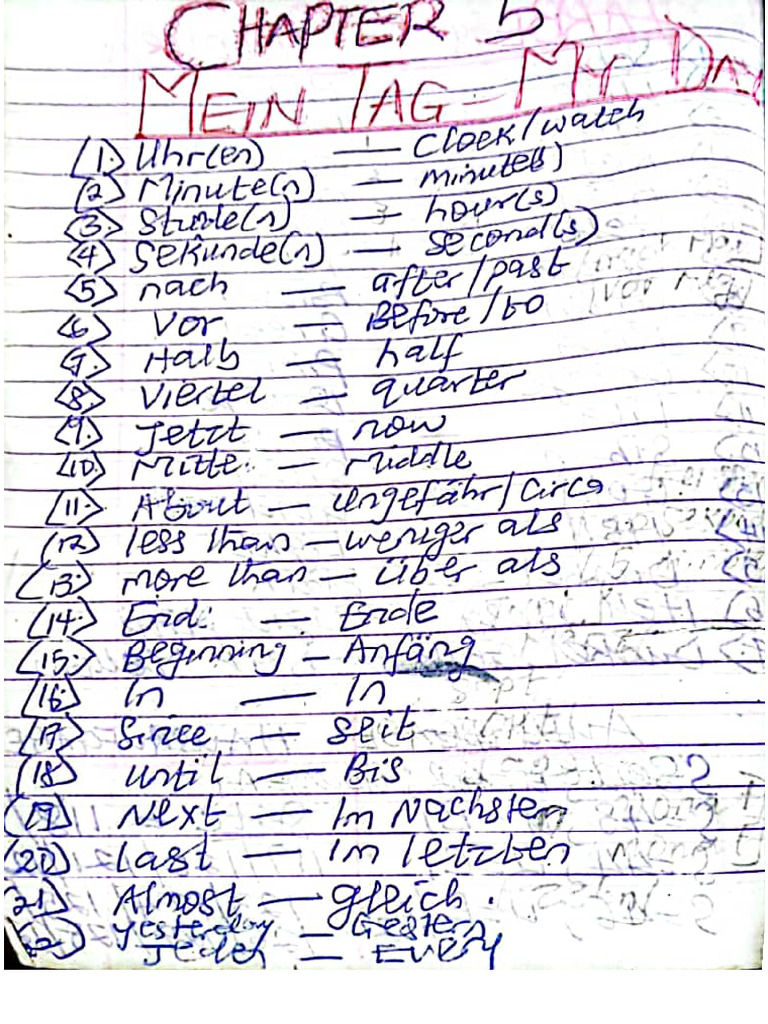 CHAPTER 5
MEIN TAG - MY DAY
1. Uhr(en) — Clock/watch
2 Minute(n) — minute(s)
3. Stude(n) — hour(s)
4 Sekunde(n) — Second(s)
5 nach — after/past
6 Vor — Before/to
7. Halb — half
8. Viertel — quarter
9. Jetzt — now
10. Mitte. — Middle
11. About — Ungefähr/Circa
12 less than — weniger als
13. more than — über als
14. End. — Ende
15. Beginning — Anfäng
16. In — In
17 Since — Seit
18 until — Bis
19 Next — Im Nachsten
20. Last — Im letzten
21. Almost — gleich.
22 Yesterday — Gestern
Jeden — Every